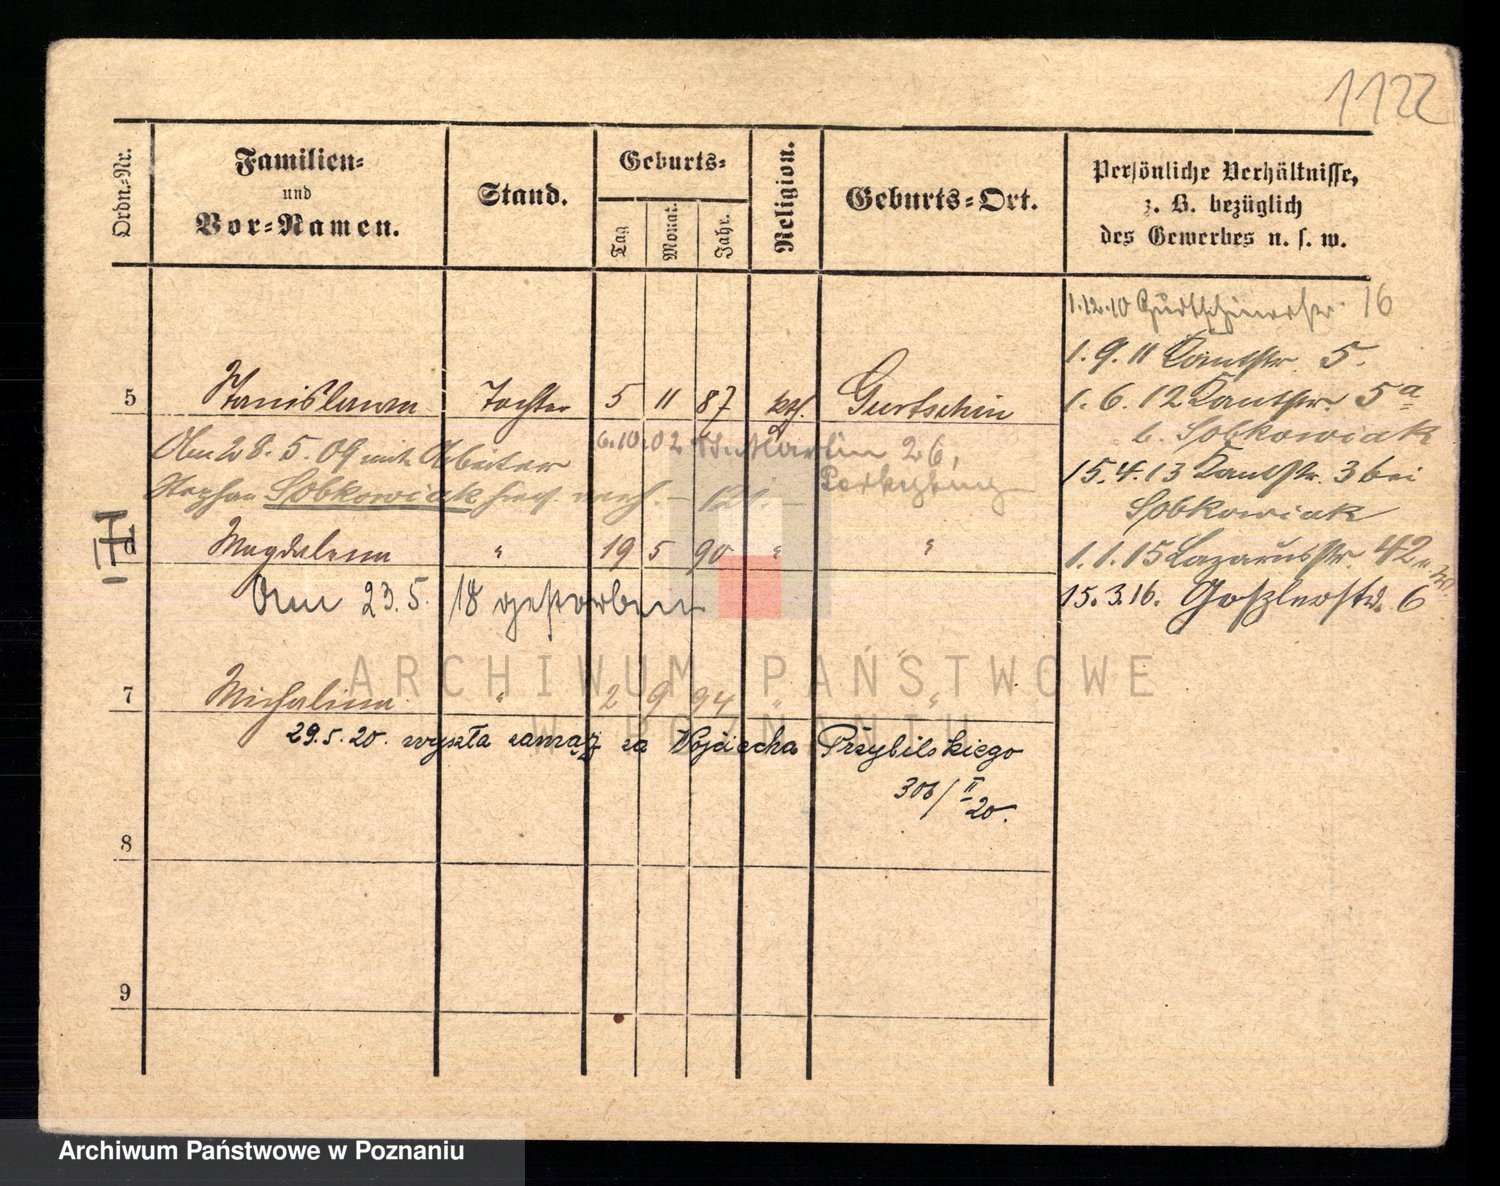 1122
Ordn.-Nr.
Familien-
und
Vor-Namen.
Stand.
Geburts-
Tag
Monat.
Jahr.
Religion.
Geburts-Ort.
Persönliche Verhältnisse,
z. B. bezüglich
des Gewerbes u. s. w.
1.12.10 Gurtschinerstr. 16
1.9.11 Kantstr. 5.
5 Stanislawa Tochter 5 11 87 kth. Gurtschin
1.6.12 Kantstr. 5a
b. Sobkowiak
Am 28.5.09 mit Arbeiter
6.10.02 St. Martin 26,
Stephan Sobkowiak
15.4.13 Kantstr. 3 bei
Sobkowiak
Magdalena " 19 5 90 " "
1.1.15 Lazarusstr. 42
Am 23.5.18 gestorben
15.3.16. Goßlerstr. 6
7 Michalina " 2 9 94 " "
29.5.20. wyszła zamąż za Wojciecha Przybilskiego
306/II 20.
8
9
ARCHIWUM PAŃSTWOWE
W POZNANIU
Archiwum Państwowe w Poznaniu